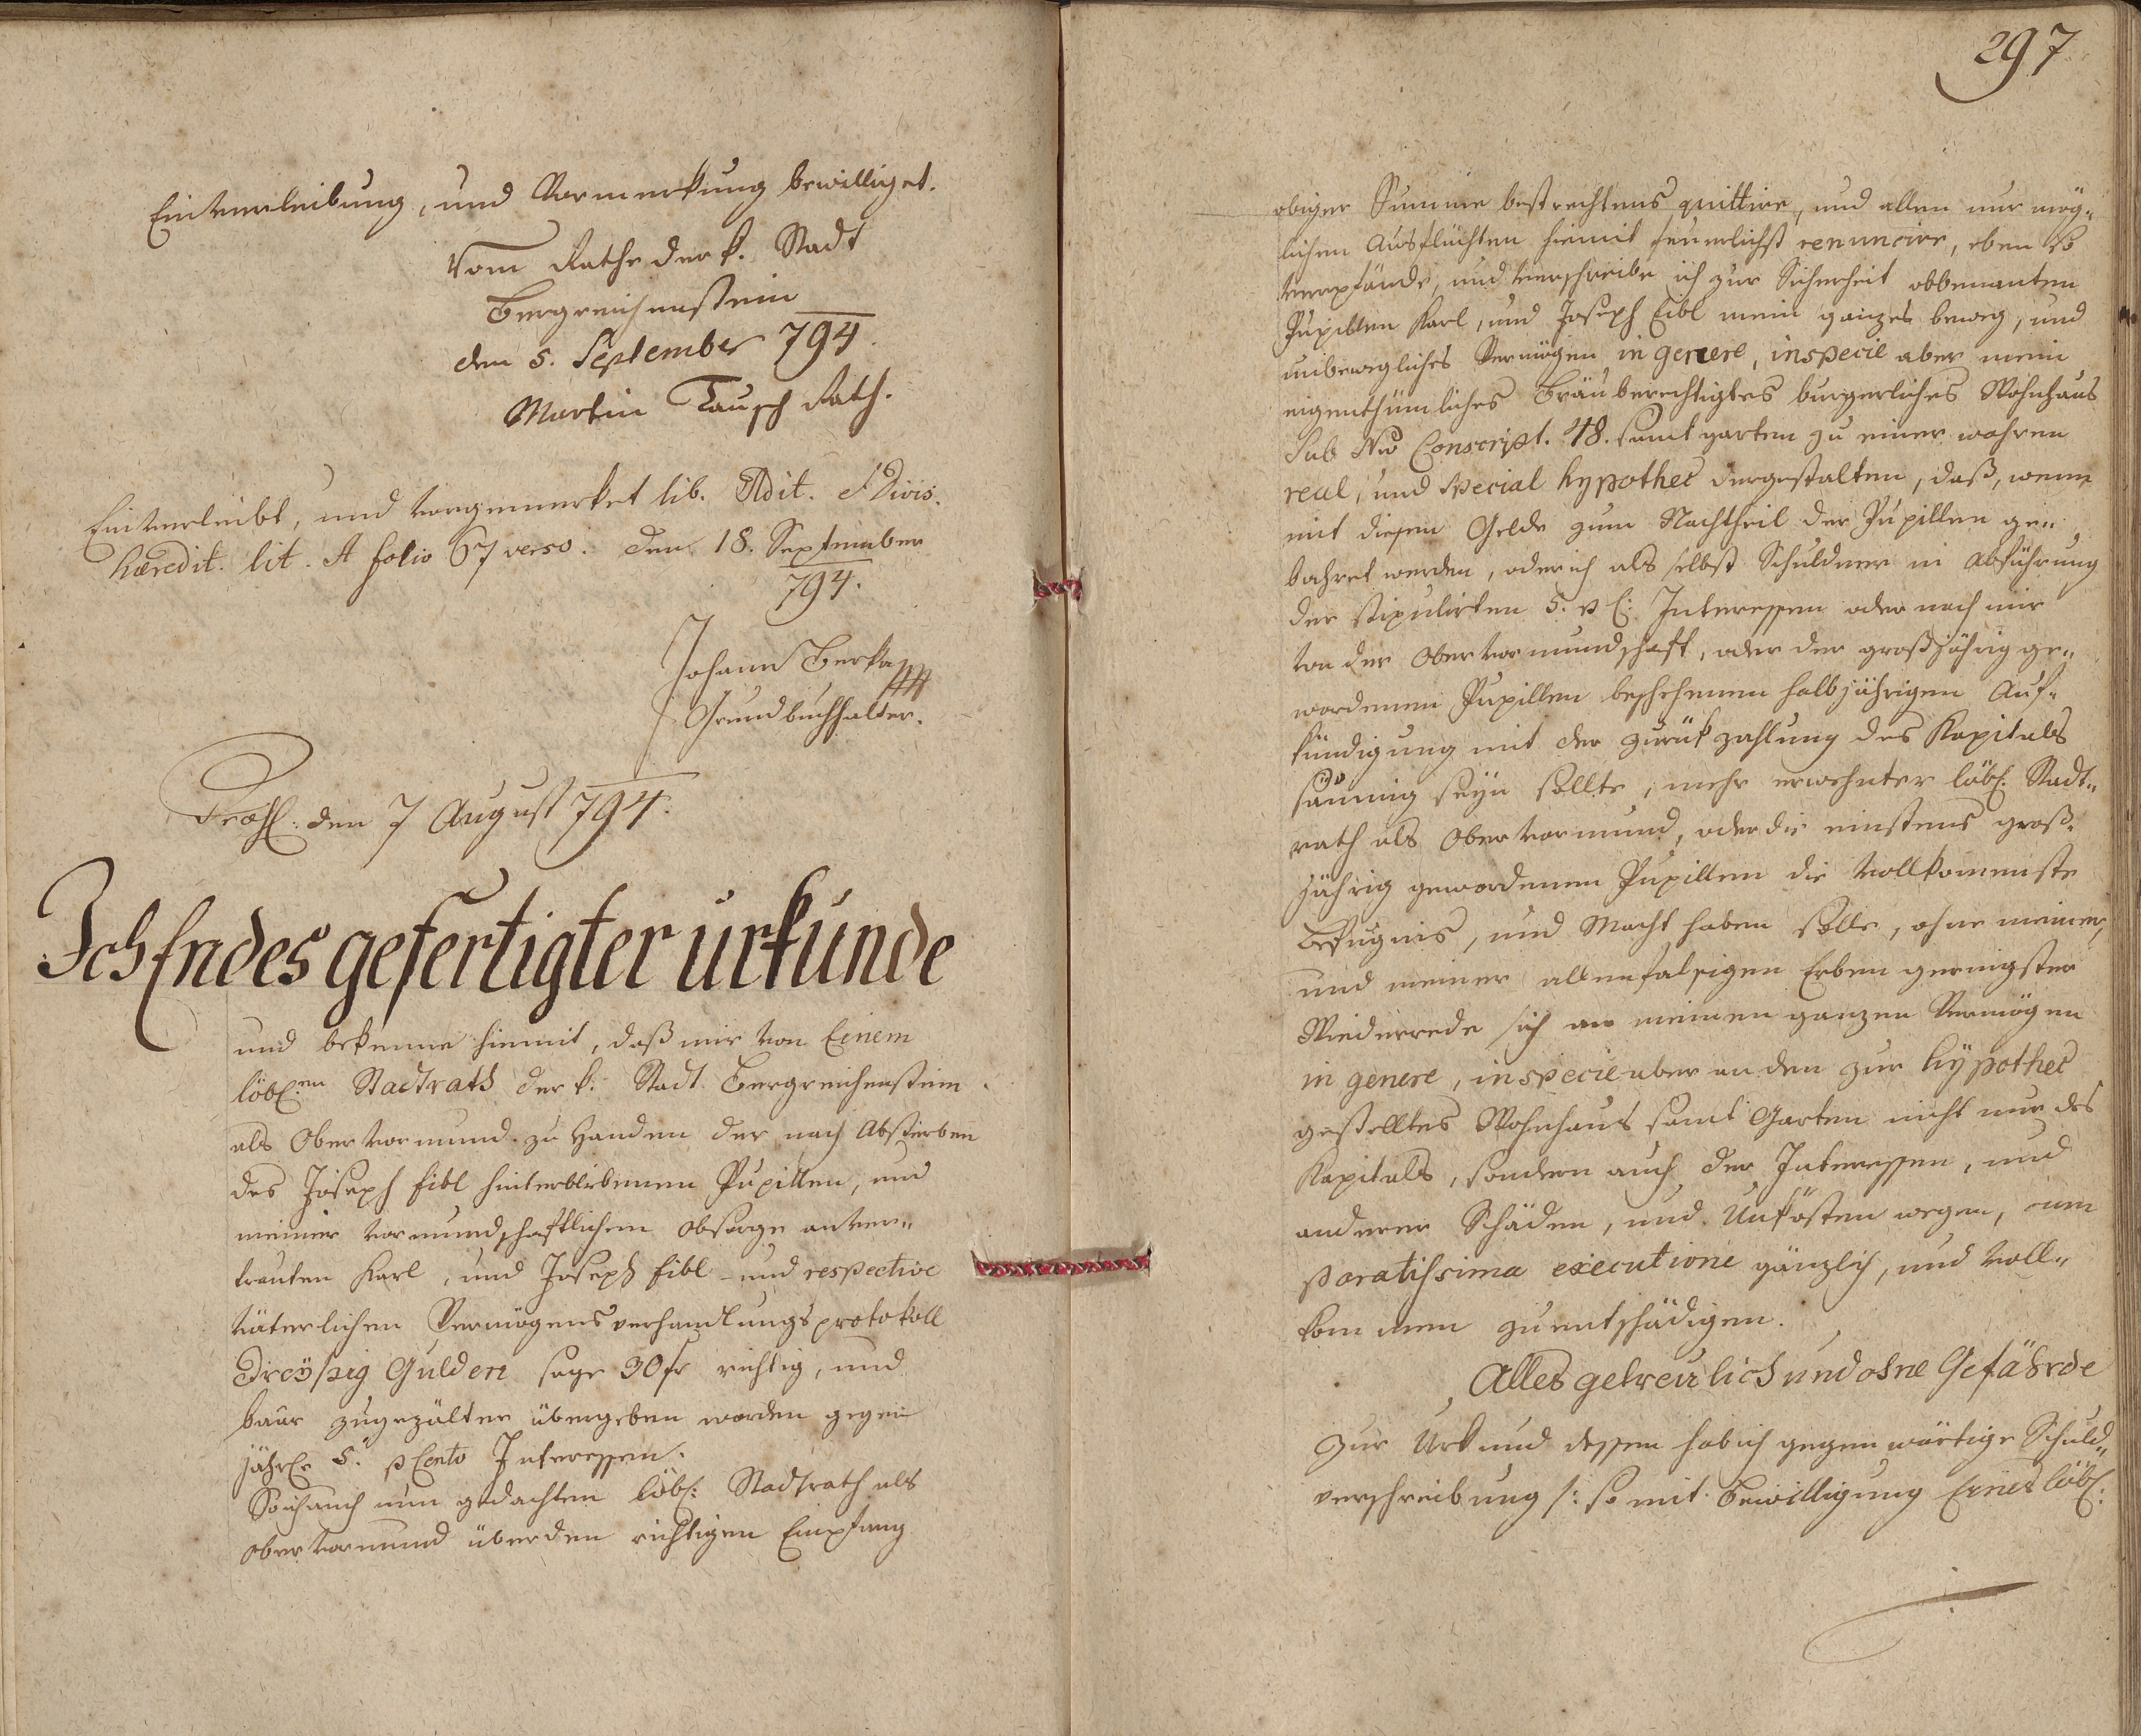 Einverleibung, und Vormerkung bewilliget.
Vom Rathe der k. Stadt
Bergreichenstein
den 5. September 794.
Martin Tausch Rath.
Einverleibt, und vorgemerket lib. Adit. et Divis.
hæredit. lit. A folio 67 verso. den 18. September
794.
Johann Berka
Grundbuchhalter.
Præs: den 7 August 794.
Ich Endes gefertigter urkunde
und bekenne hiemit, daß mir von Einem
löbl:en Stadtrath der k. Stadt Bergreichenstein
als Obervormund zu Handen der nach Absterben
des Joseph Eibl hinterblibenen Pupillen, und
meiner vormundschaftlichen Obsorge anver„
trauten Karl, und Joseph Eibl und respective
väterlichen Vermögensverhandlungsprotokoll
Dreÿßig Gulden sage 30 fr richtig, und
baar zugezälter übergeben worden gegen
jährl: 5. pCento Interessen.
So ich auch nun gedachten löbl: Stadtrath als
Obervormund über den richtigen Empfang
297
obiger Summe bestrechtens quittire, und allen nur mög„
lichen Ausflüchten hiemit feuerlichst renuncire, eben so
verpfände, und verschreibe ich zur Sicherheit obbenanten
Pupillen Karl, und Joseph Eibl mein ganzes beweg, und
unbewegliches Vermögen in genere, in specie aber mein
eigenthümliches Bräuberechtigtes burgerliches Wohnhaus
Sub Nro Conscript. 48. samt garten zu einer wahren
real, und Special hypothec dergestalten, daß, wenn
mit diesem Gelde zum Nachtheil der Pupillen ge„
bahret werden, oder ich als selbst Schuldner in Abführung
der stipulirten 5. p C: Interessen oder nach mir
von der Obervormundschaft, oder der großjährig ge„
wordenen Pupillen beschehenen halbjährigen Auf„
kündigung mit der zurükzahlung des Kapitals
säumig seÿn sollte, mehr erwehnter löbl: Stadt„
rath als Obervormund, oder die einstens groß„
jährig gewordenen Pupillen die vollkommenste
Befugnis, und Macht haben solle, ohne meiner,
und meiner allenfalsigen Erben geringster
Wiederrede sich an meinen ganzen Vermögen
in genere, in specie aber an den zur hÿpothec
gestelltes Wohnhaus samt Garten nicht nur des
Kapitals, sondern auch der Interessen, und
anderer Schäden, und Unkösten wegen, cum
paratissima executione gänzlich, und voll„
kommen zu entschädigen.
Alles getreulich und ohne Gefährde
Zur Urkund dessen hab ich gegenwärtige Schuld„
verschreibung /: so mit Bewilligung Eines löbl: